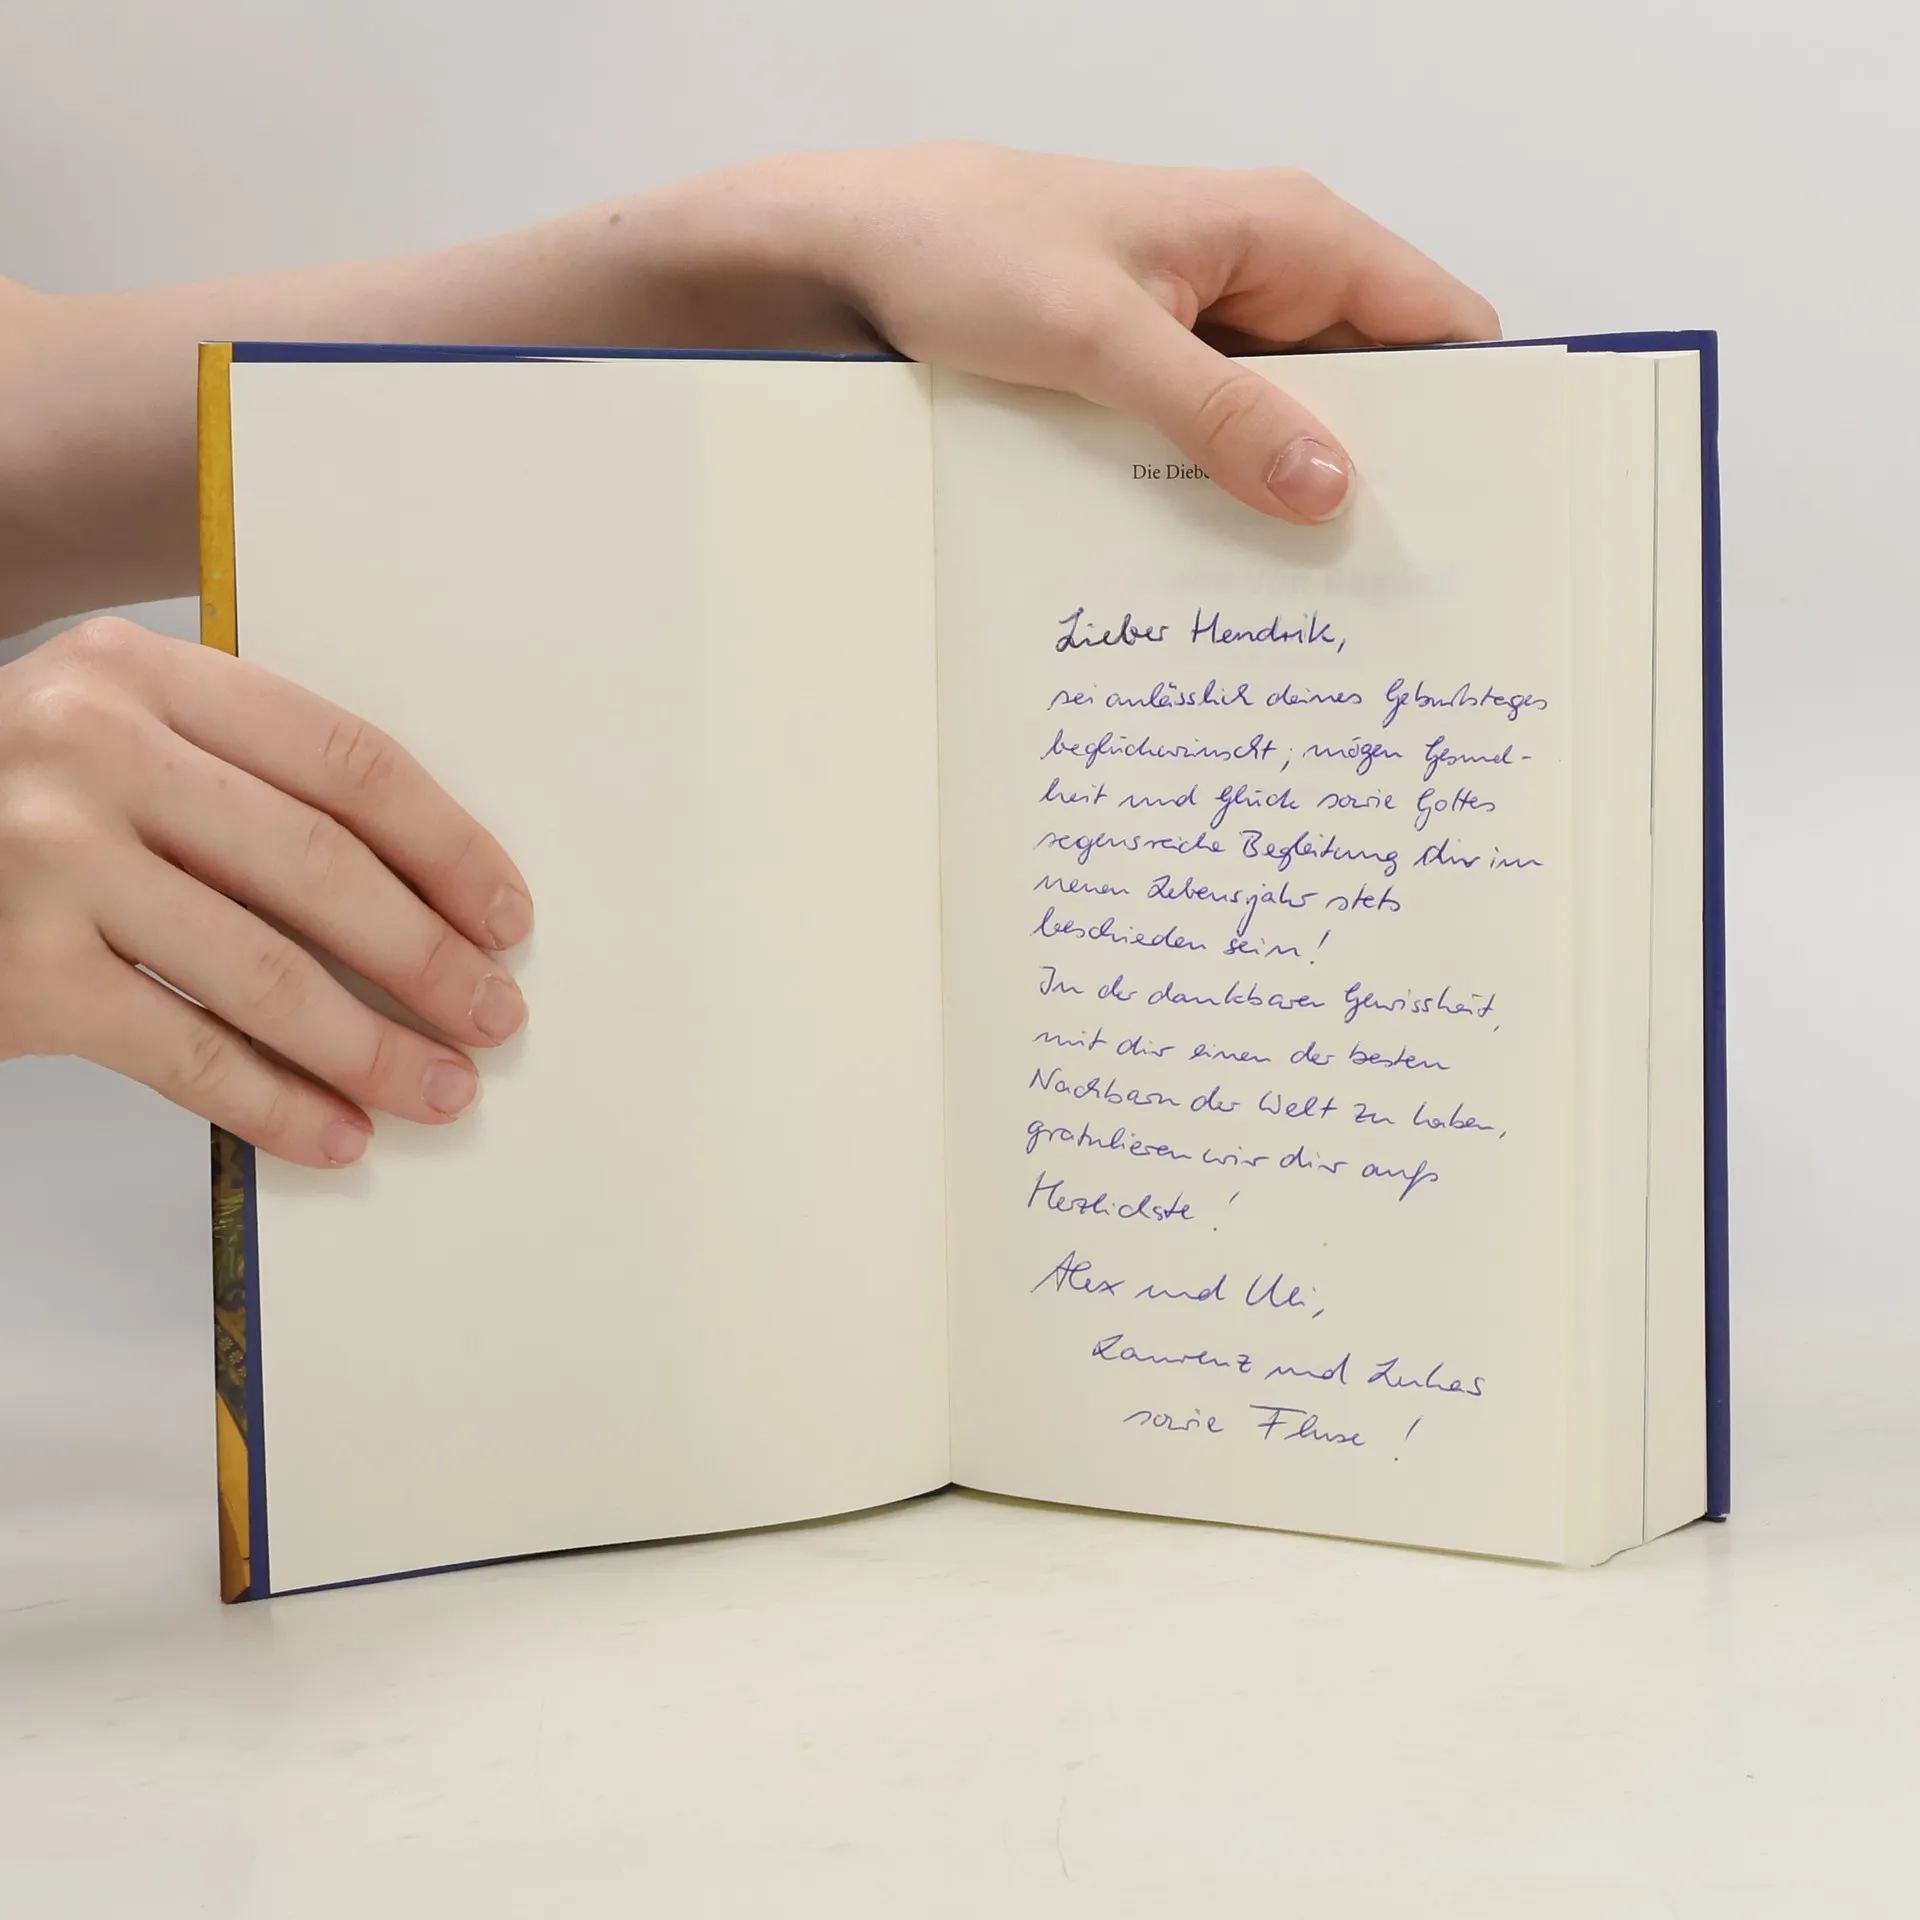 Die Diebe
Lieber Hendrik,
sei anlässlich deines Geburtstages
beglückwünscht; mögen Gesund-
heit und Glück sowie Gottes
segensreiche Begleitung dir im
neuen Lebensjahr stets
beschieden sein!
In der dankbaren Gewissheit,
mit dir einen der besten
Nachbarn der Welt zu haben,
gratulieren wir dir aufs
Herzlichste!
Alex und Uli,
Laurenz und Lukas
sowie Fluse!